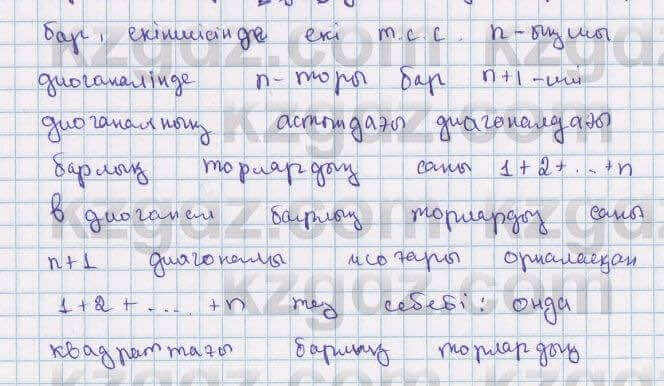 бар, екіншісінде екі т.с.с. n-ыңшы
диоганалінде n-торы бар n+1-ші
диоганалның астындағы диагоналдағы
барлық торлардың саны 1+2+...+n
в диоганал барлық торлардың саны
n+1 диагоналы жоғары орналасқан
1+2+.....+n тең себебі: онда
квадраттағы барлық торлардың